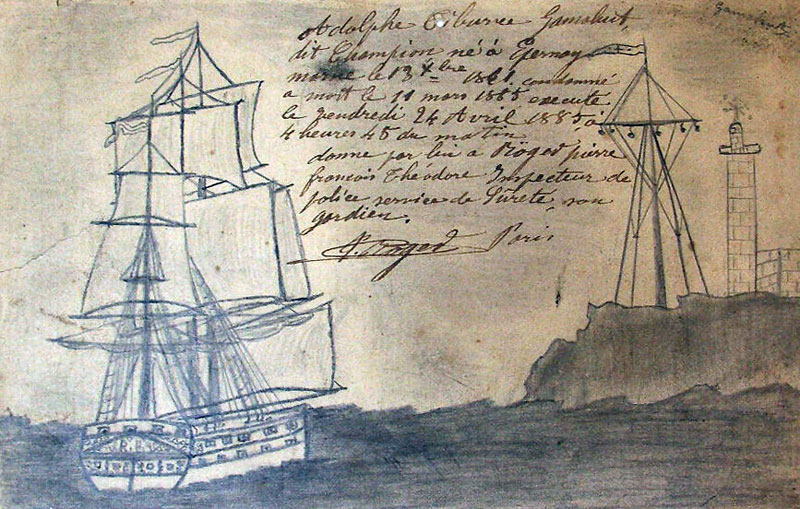 Gamahut
Adolphe Tiburce Gamahut,
dit Champion né à Epernay
marne le 13 Xbre 1861 condamné
a mort le 11 mars 1885 execute
le vendredi 24 Avril 1885, à
4 heures 45 du matin
donne par lui a Roger pierre
francois Theodore Inspecteur de
police service de Sureté, son
gardien.
Roger Paris